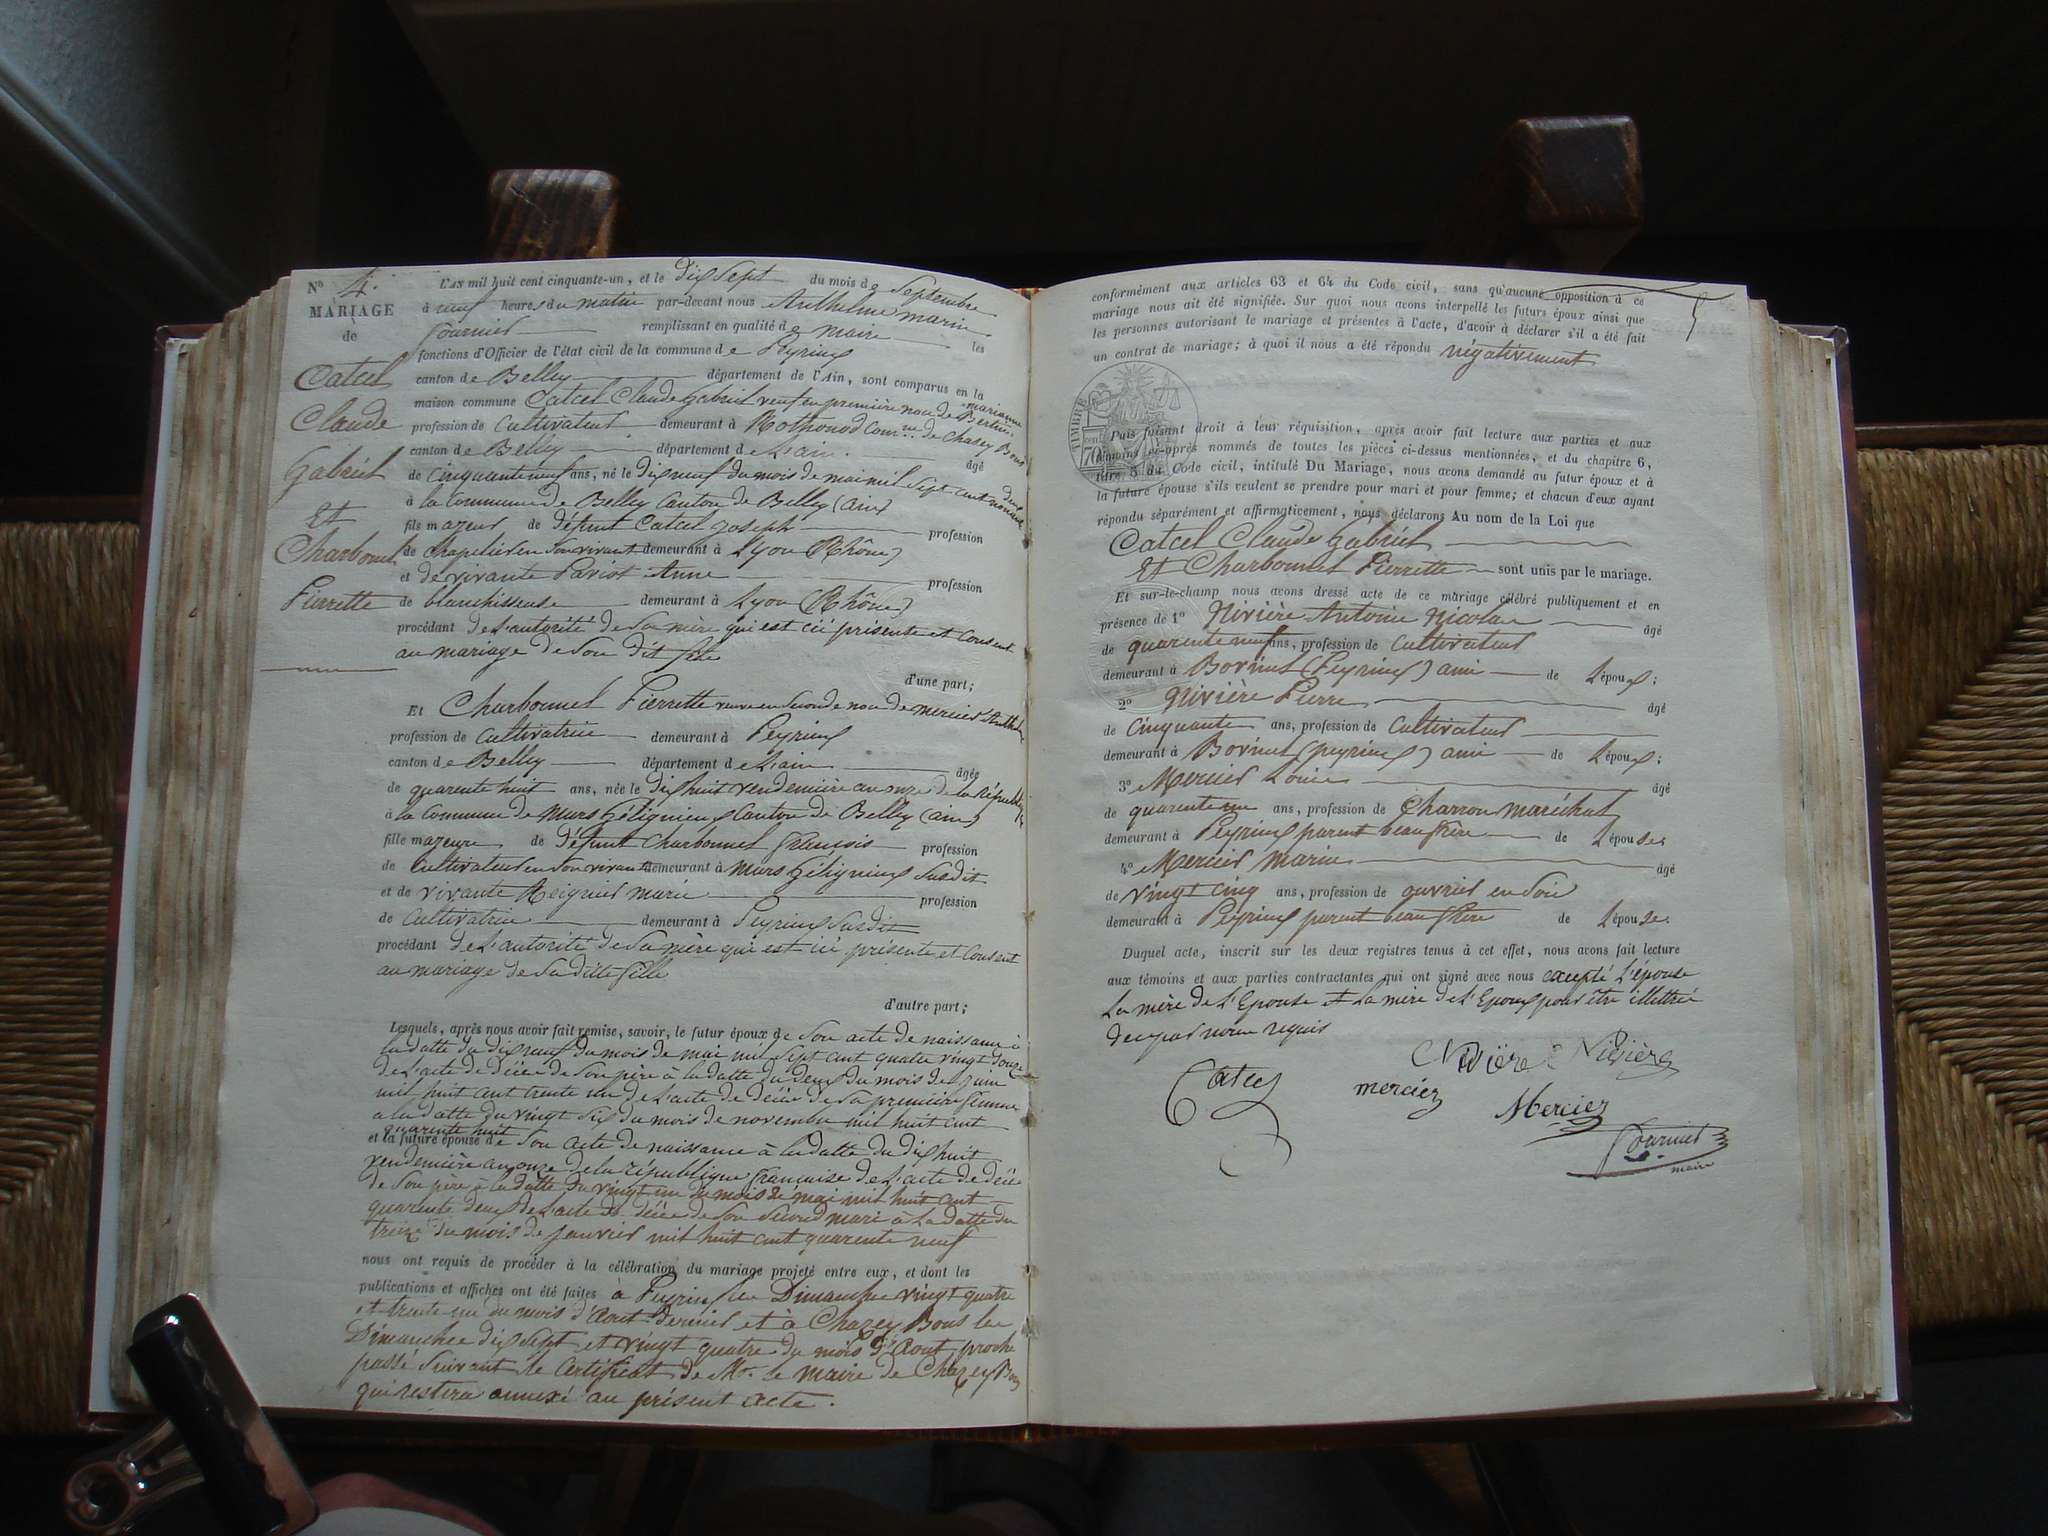 No 4.
MARIAGE
de
Catcel
Claude
Gabriel
Et
Charbonnel
Pierrette
L'AN mil huit cent cinquante-un, et le dix Sept du mois de Septembre
à neuf heures du matin par-devant nous Anthelme marin
Fournier remplissant en qualité de maire les
fonctions d'Officier de l'état civil de la commune de Peyrieux
canton de Belley département de l'Ain, sont comparus en la
maison commune Catcel Claude Gabriel veuf en première noce de marianne Bertin
profession de Cultivateur demeurant à Rothonod Com.ne de Chazey Bons
canton de Belley département de L'ain.
âgé
de cinquante neuf ans, né le dix neuf du mois de mai mil Sept cent nonante deux
à la Commune de Belley Canton de Belley (ain)
fils mazeur de défunt Catcel Joseph profession
de chapelier en Son vivant demeurant à Lyon (Rhône)
et de vivante Pariot Anne profession
de blanchisseuse demeurant à Lyon (Rhône)
procédant de L'autorité de Sa mère qui est ici présente et Consent
au mariage de Son dit fils
d'une part;
Et Charbonnel Pierrette veuve en Seconde noce de mercier Anthelme
profession de Cultivatrice demeurant à Peyrieux
canton de Belley département de L'ain
âgée
de quarente huit ans, née le dix huit vendemiaire an onze de la République
à la Commune de Murs Géligneux Canton de Belley (ain)
fille mazeure de défunt Charbonnel françois profession
de Cultivateur en Son vivant demeurant à Murs Géligneux Susdit
et de vivante Reignier marie profession
de Cultivatrice demeurant à Peyrieux Susdit
procédant de L'autorité de Sa mère qui est ici présente et Consent
au mariage de Sa ditte fille
d'autre part;
Lesquels, après nous avoir fait remise, savoir, le futur époux de Son acte de naissance à
la datte du dix neuf du mois de mai mil Sept cent quatre vingt douze
de L'acte de décée de Son père à la datte du deux du mois de Juin
mil huit cent trente un de L'acte de décée de Sa première femme
a la datte du vingt Six du mois de novembre mil huit cent
quarente huit
et la future épouse de Son acte de naissance à la datte du dix huit
vendemière an onze de la république française de L'acte de décée
de Son père à la datte du vingt un du mois de mai mil huit cent
quarente deux de L'acte de décée de Son Second mari à La datte du
treize du mois de Janvier mil huit cent quarente neuf
nous ont requis de procéder à la célébration du mariage projeté entre eux, et dont les
publications et affiches ont été faites à Peyrieux les Dimanche vingt quatre
et trente un du mois d'Aout Dernier et à Chazey Bons les
Dimanches dix Sept et vingt quatre du mois d'Aout proche
passé Suivant le Certificat de Mr. le maire de Chazey Bons
qui restera annexé au présent acte.
5
conformément aux articles 63 et 64 du Code civil, sans qu'aucune opposition à ce
mariage nous ait été signifiée. Sur quoi nous avons interpellé les futurs époux ainsi que
les personnes autorisant le mariage et présentes à l'acte, d'avoir à déclarer s'il a été fait
un contrat de mariage; à quoi il nous a été répondu négativement
TIMBRE
70
Puis faisant droit à leur réquisition, après avoir fait lecture aux parties et aux
témoins ci-après nommés de toutes les pièces ci-dessus mentionnées, et du chapitre 6,
titre 5 du Code civil, intitulé Du Mariage, nous avons demandé au futur époux et à
la future épouse s'ils veulent se prendre pour mari et pour femme; et chacun d'eux ayant
répondu séparément et affirmativement, nous déclarons Au nom de la Loi que
Catcel Claude Gabriel
Et Charbonnel Pierrette sont unis par le mariage.
Et sur-le-champ nous avons dressé acte de ce mariage célébré publiquement et en
présence de 1o Nivière Antoine Nicolas âgé
de quarente neuf ans, profession de Cultivateur
demeurant à Borinet (Peyrieux) ami de L'époux;
2o Nivière Pierre âgé
de Cinquante ans, profession de Cultivateur
demeurant à Borinet (peyrieux) ami de L'époux;
3o Mercier Louis âgé
de quarente un ans, profession de Charron maréchal
demeurant à Peyrieux parent beau frère de L'épouse
4o Mercier Marin âgé
de vingt cinq ans, profession de ouvrier en Soie
demeurant à Peyrieux parent beau frère de L'épouse
Duquel acte, inscrit sur les deux registres tenus à cet effet, nous avons fait lecture
aux témoins et aux parties contractantes qui ont signé avec nous excepté L'épouse
La mère de L'Epouse et La mère de L'Epoux pour être illettrée
de ce par nous requis
Nivière Nivière
Catcel mercier Mercier
Fournier
maire